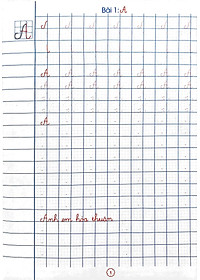 Bài 1: A
A
A A A A A A A
A A A A A A A
A A A A A A A
A
Anh em hòa thuận
1